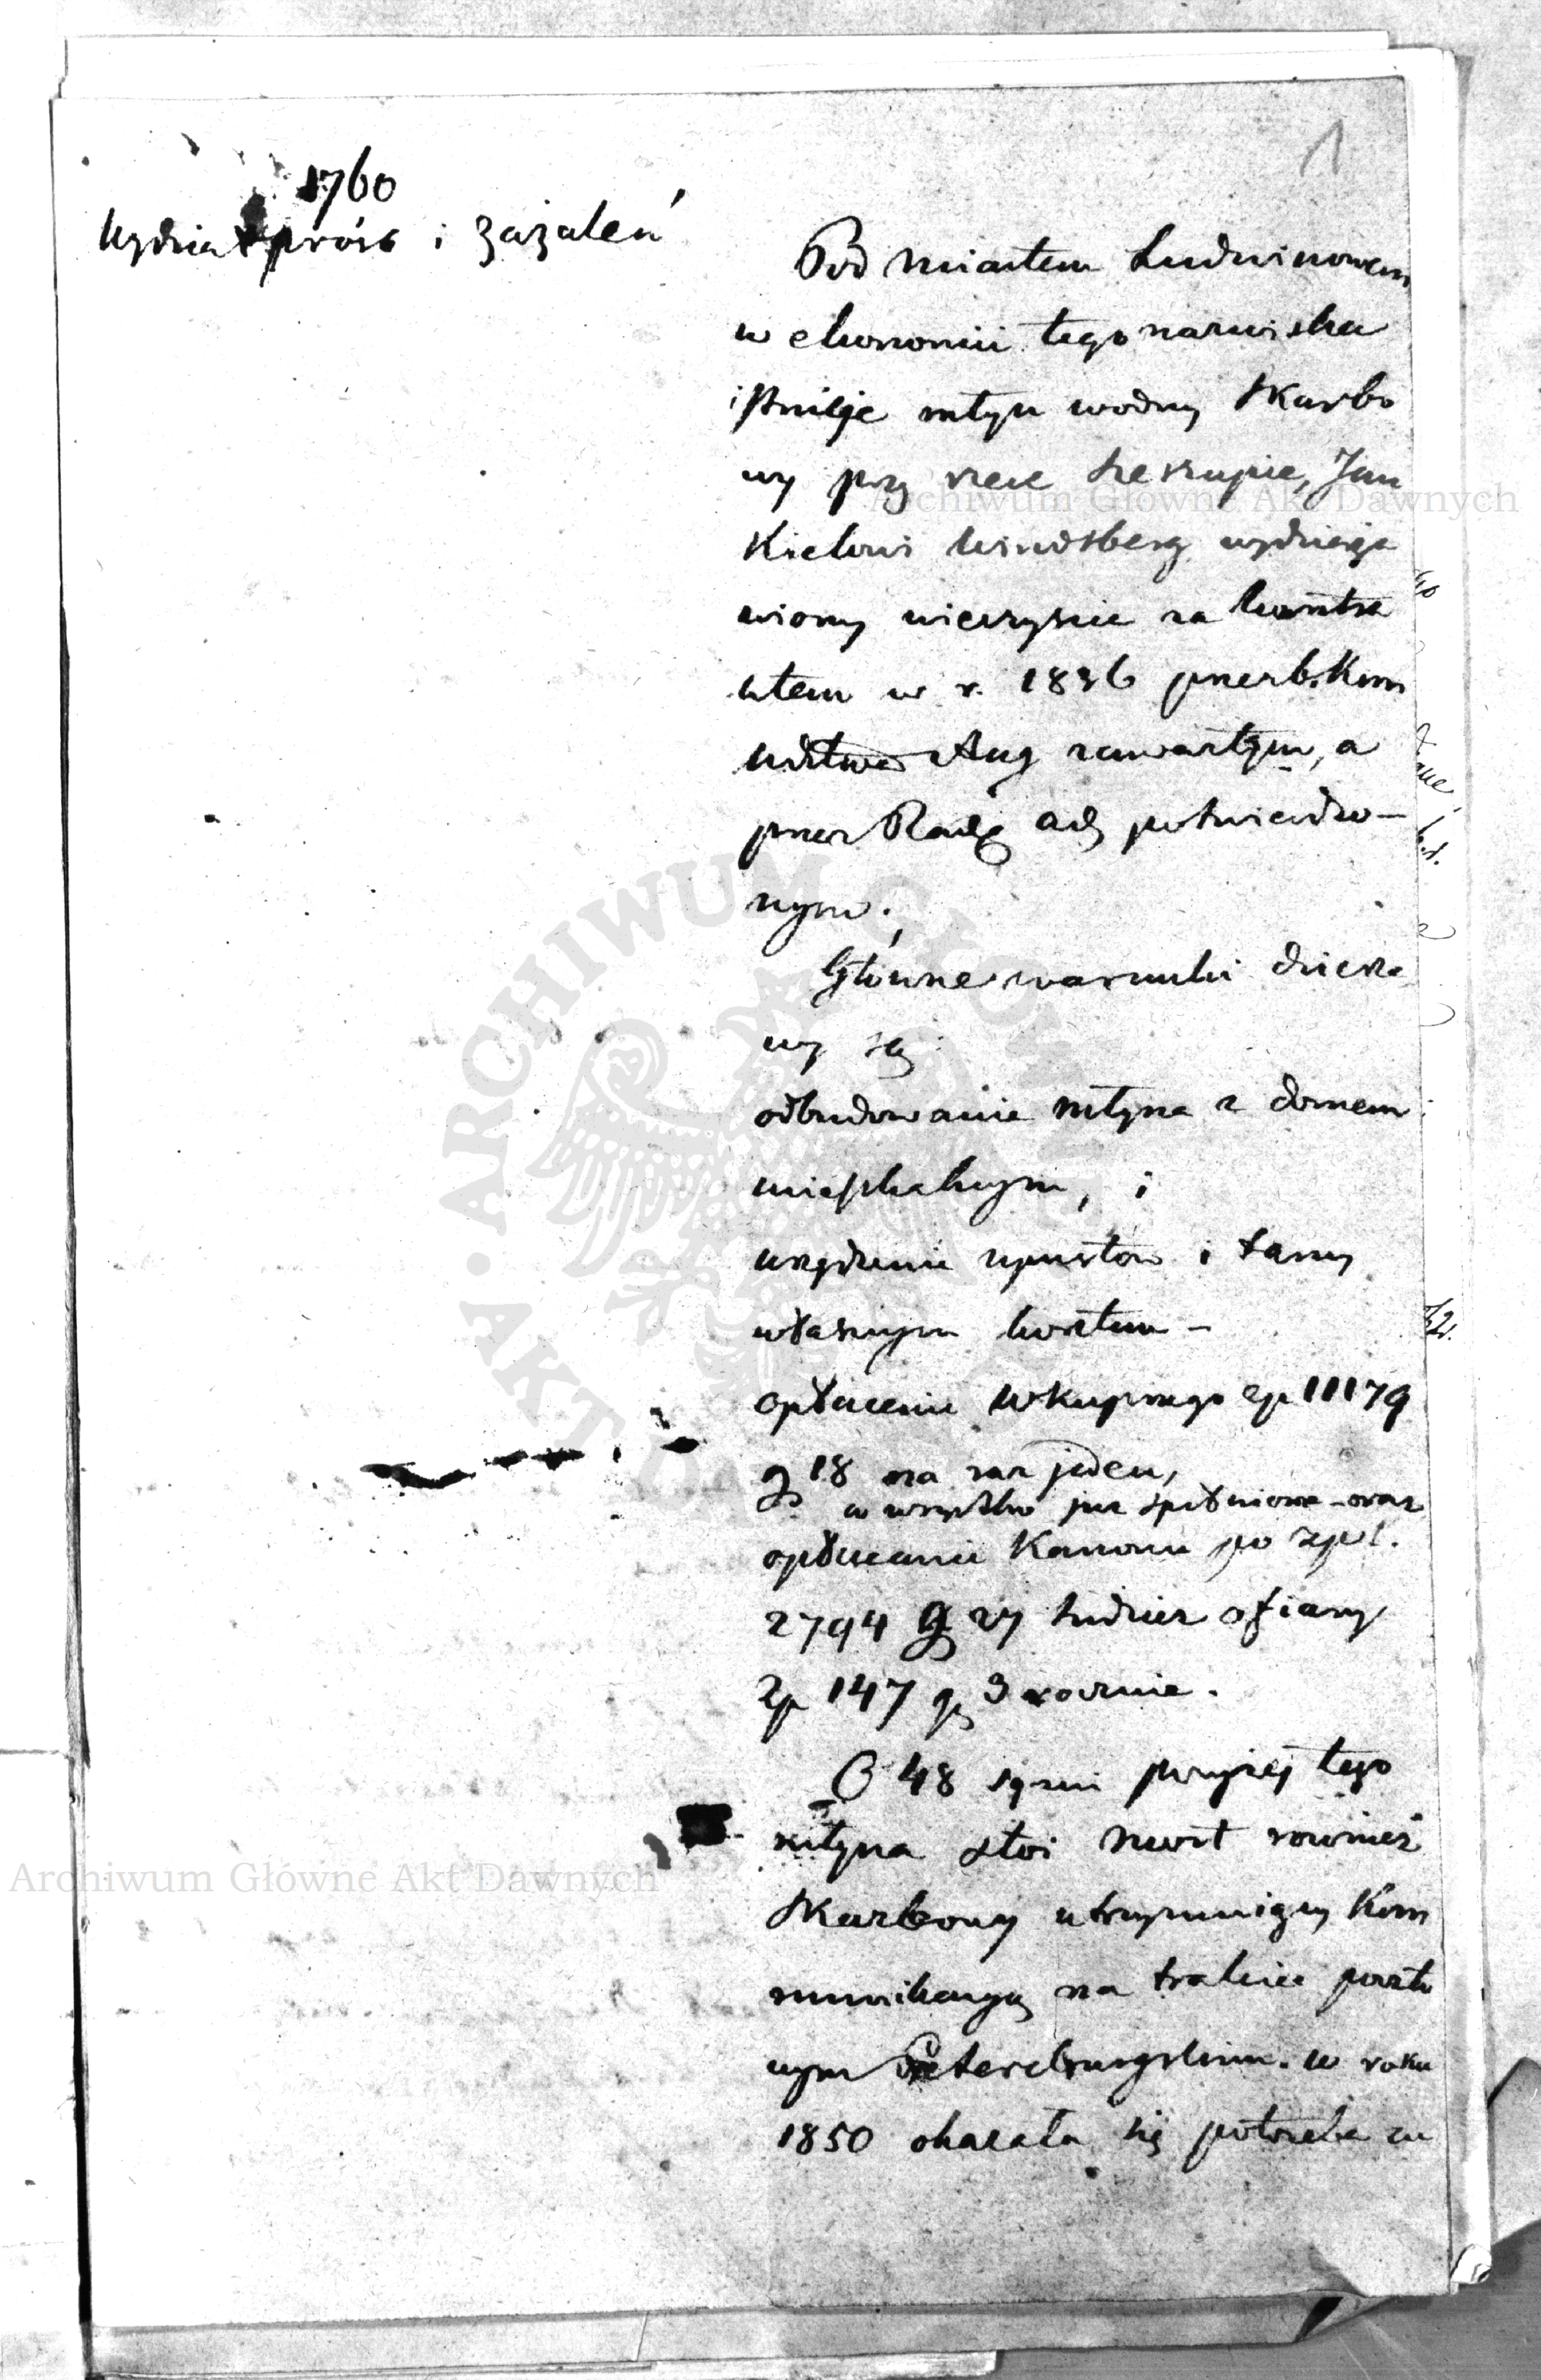 1
1760
Wydział próśb i zażaleń
Pod miastem Ludwinowem
w ekonomii tego nazwiska
istnieje młyn wodny skarbo
wy przy rzece Szeszupie, Jan
kielowi Windsberg wydzierża
wiony wieczyście za kontra
ktem w r. 1836 przez b. Kom
Wdztwa Aug zawartym, a
przez Radę adj potwierdzo-
nym.
Główne warunki dzierża
wy są
odbudowanie młyna z domem
mieszkalnym, i
urządzenie upustów i tamy
własnym kosztem -
opłacenie wkupnego zp 11179
g 18 na raz jeden,
w wszystko już spełnione - oraz
opłacanie Kanonu po zpol.
2794 g 27 tudzież ofiary
zp 147 g 3 rocznie.
O 48 sążni powyżej tego
młyna stoi most również
skarbowy utrzymujący Kom
munikacyą na trakcie poczto
wym Petersburgskim. w roku
1850 okazała się potrzeba za
Archiwum Główne Akt Dawnych
Archiwum Główne Akt Dawnych